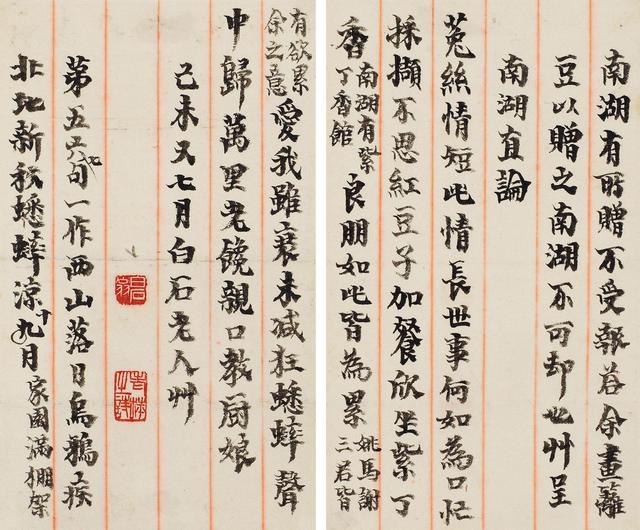 南湖有所贈不受報答余畫籬
豆以贈之南湖不可却也艸呈
南湖直論
菟絲情短此情長世事何如為口忙
採擷不思紅豆子加餐欣坐紫丁
香南湖有紫丁香館良朋如此皆為累姚馬謝三君皆
有欲累余之意愛我雖衰未減狂蟋蟀聲
中歸萬里老饞親口教厨娘
己未又七月白石老人艸
第五六七句一作西山落日烏鴉疾
北地新秋蟋蟀涼十九月家園滿棚架